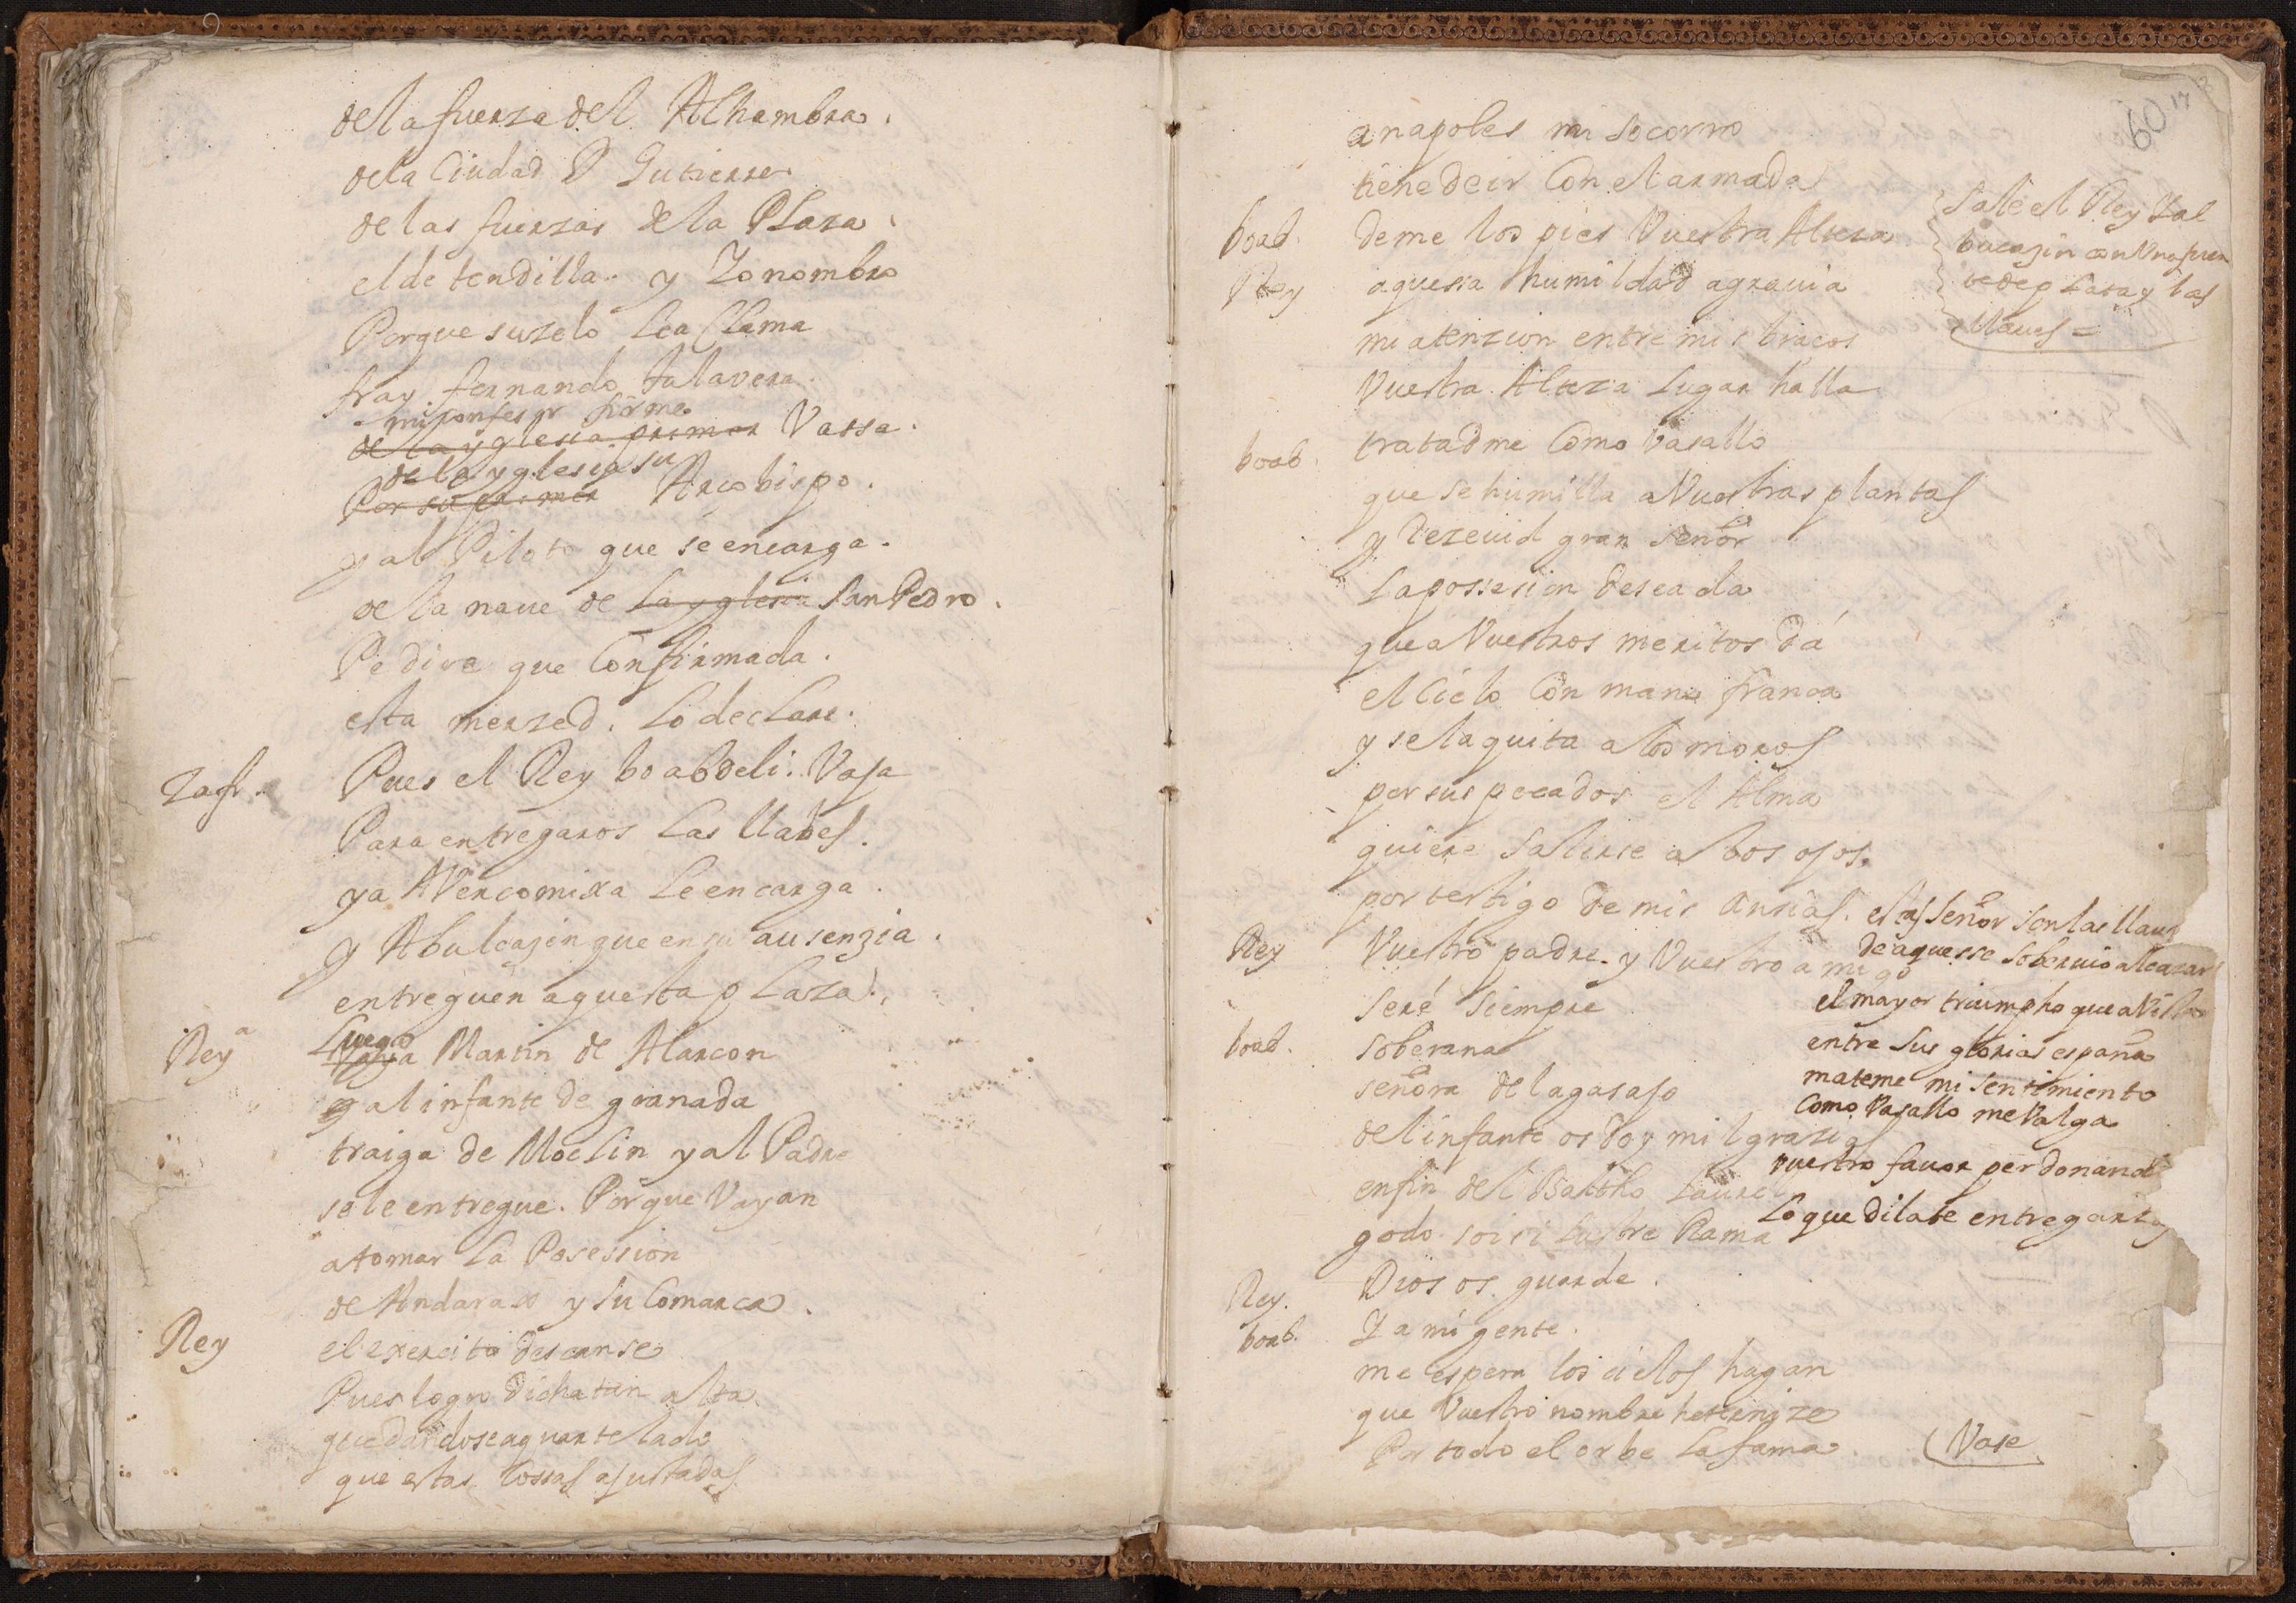 de la fuerza del Alhambra.
de la Ciudad D Gutierre
de las fuerzas de la Plaza.
el de tendilla. y Yo nombro
Porque su zelo Lea Clama
fray fernando talavera.
mi confesor firme
de la yglesia primer Vassa.
de la yglesia su
Por su primer Arcobispo.
y al Piloto que se encarga.
de la naue de la yglesia San Pedro.
Pedire que Confirmada.
esta merzed. Lo declare.
Zafr. Pues el Rey boabdeli. Vaja
Para entregaros Las llabes.
ya AVencomixa Le encarga.
y Abulcajen que en su ausenzia.
entreguen aquesta plaza.
Luego
Reyª Vaya Martin de Alarcon
y al infante de granada
traiga de Moclin y al Padre
se le entregue. Porque Vayan
a tomar La Posession
de Andarax y su Comarca.
Rey el exercito descanse
Pues logro dicha tan alta.
quedandose aquartelado
que estas Cossas ajustadas
60 17
a napoles mi socorro
tiene de ir Con el armada
Sale el Rey Yal
bucazin con Una fuen
te de plata y las
llaues =
boad. deme los pies Vuestra Alteza
Rey aquessa humildad agrauia
mi atenzion entre mis bracos
Vuestra Alteza Lugar halla
boab. tratadme Como Vasallo
que se humilla a Vuestras plantas
y Rezeuid gran Señor
La possesion deseada
que a Vuestros meritos dá
el Cielo Con mano franca
y se la quita a los moros
por sus pecados el Alma
quiere Salirse a los ojos.
por testigo de mis ansias.
estas señor son las llaues
de aquesse soberuio alcazar
el mayor triumpho que a Visto
entre sus glorias españa
mateme mi sentimiento
Como Vasallo me Valga
vuestro fauor perdonand
Lo que dilate entregarlas
Rey Vuestro padre. y Vuestro amigo
seré siempre
boad. soberana
señora del agasajo
del infante os doy mil grazias
enfin del Baltho Laurel
godo sois ilustre Rama
Rey. Dios os guarde.
boab. Ya mi gente.
me espera los cielos hagan
que Vuestro nombre heternize
Por todo el orbe La fama. (Vase